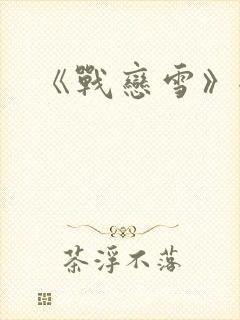 《戰戀雪》
茶浮不落